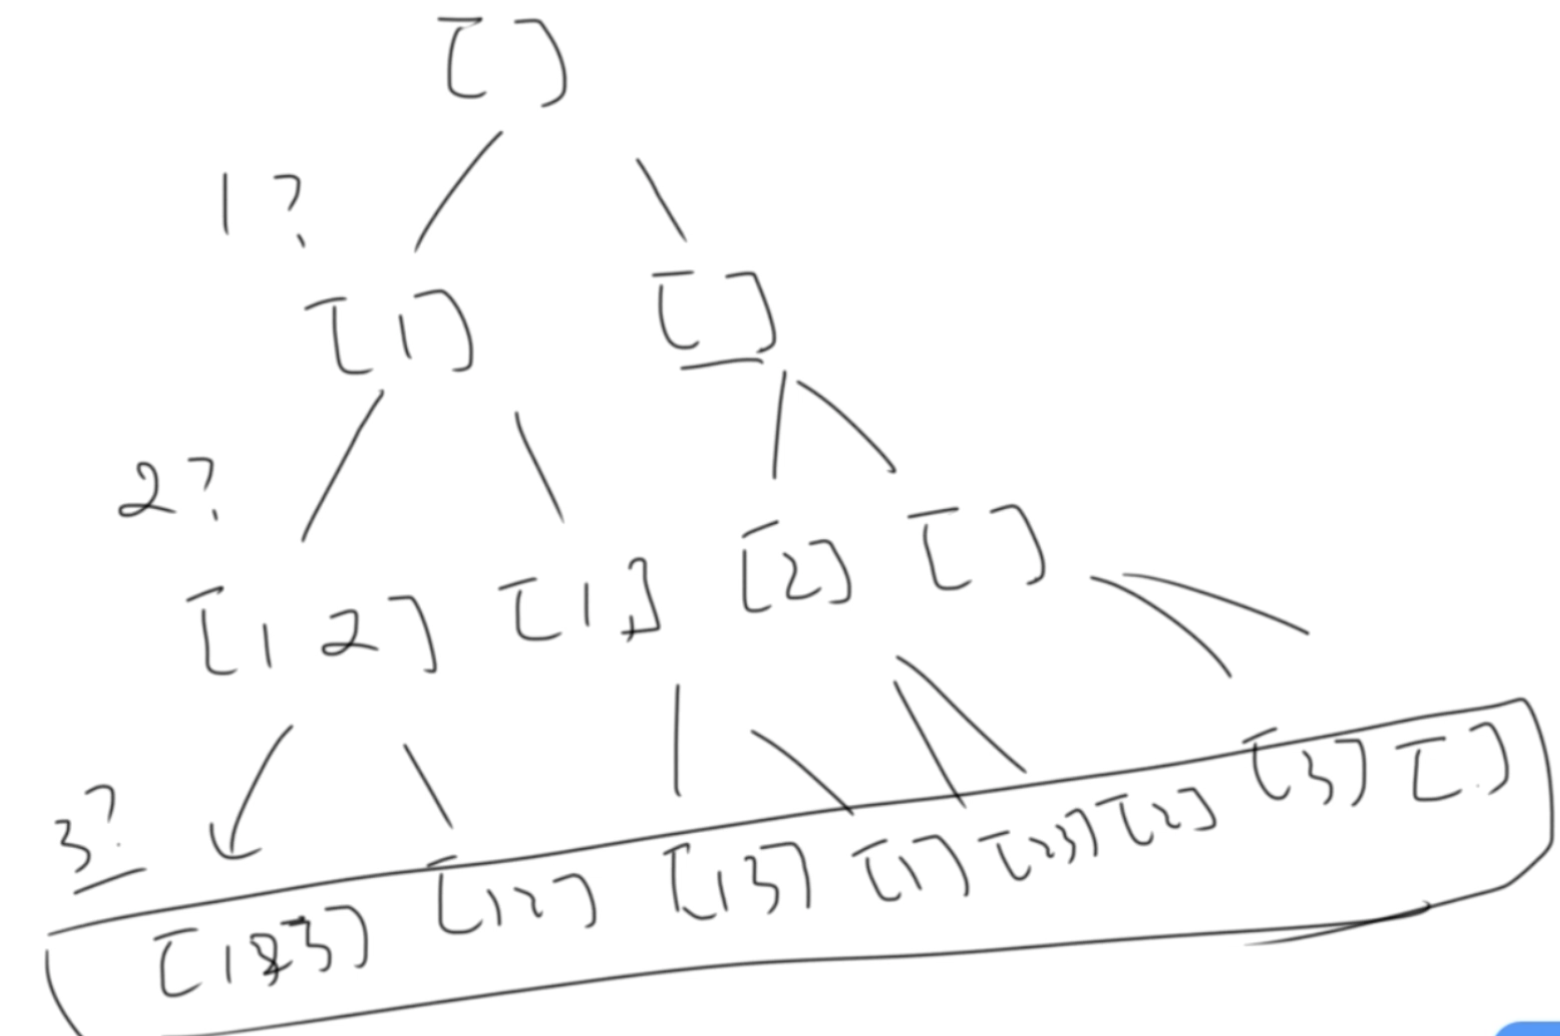 [ ]
1?
[1] [ ]
2?
[1 2] [1] [2] [ ]
3?
[123] [12] [13] [1] [23] [2] [3] [ ]